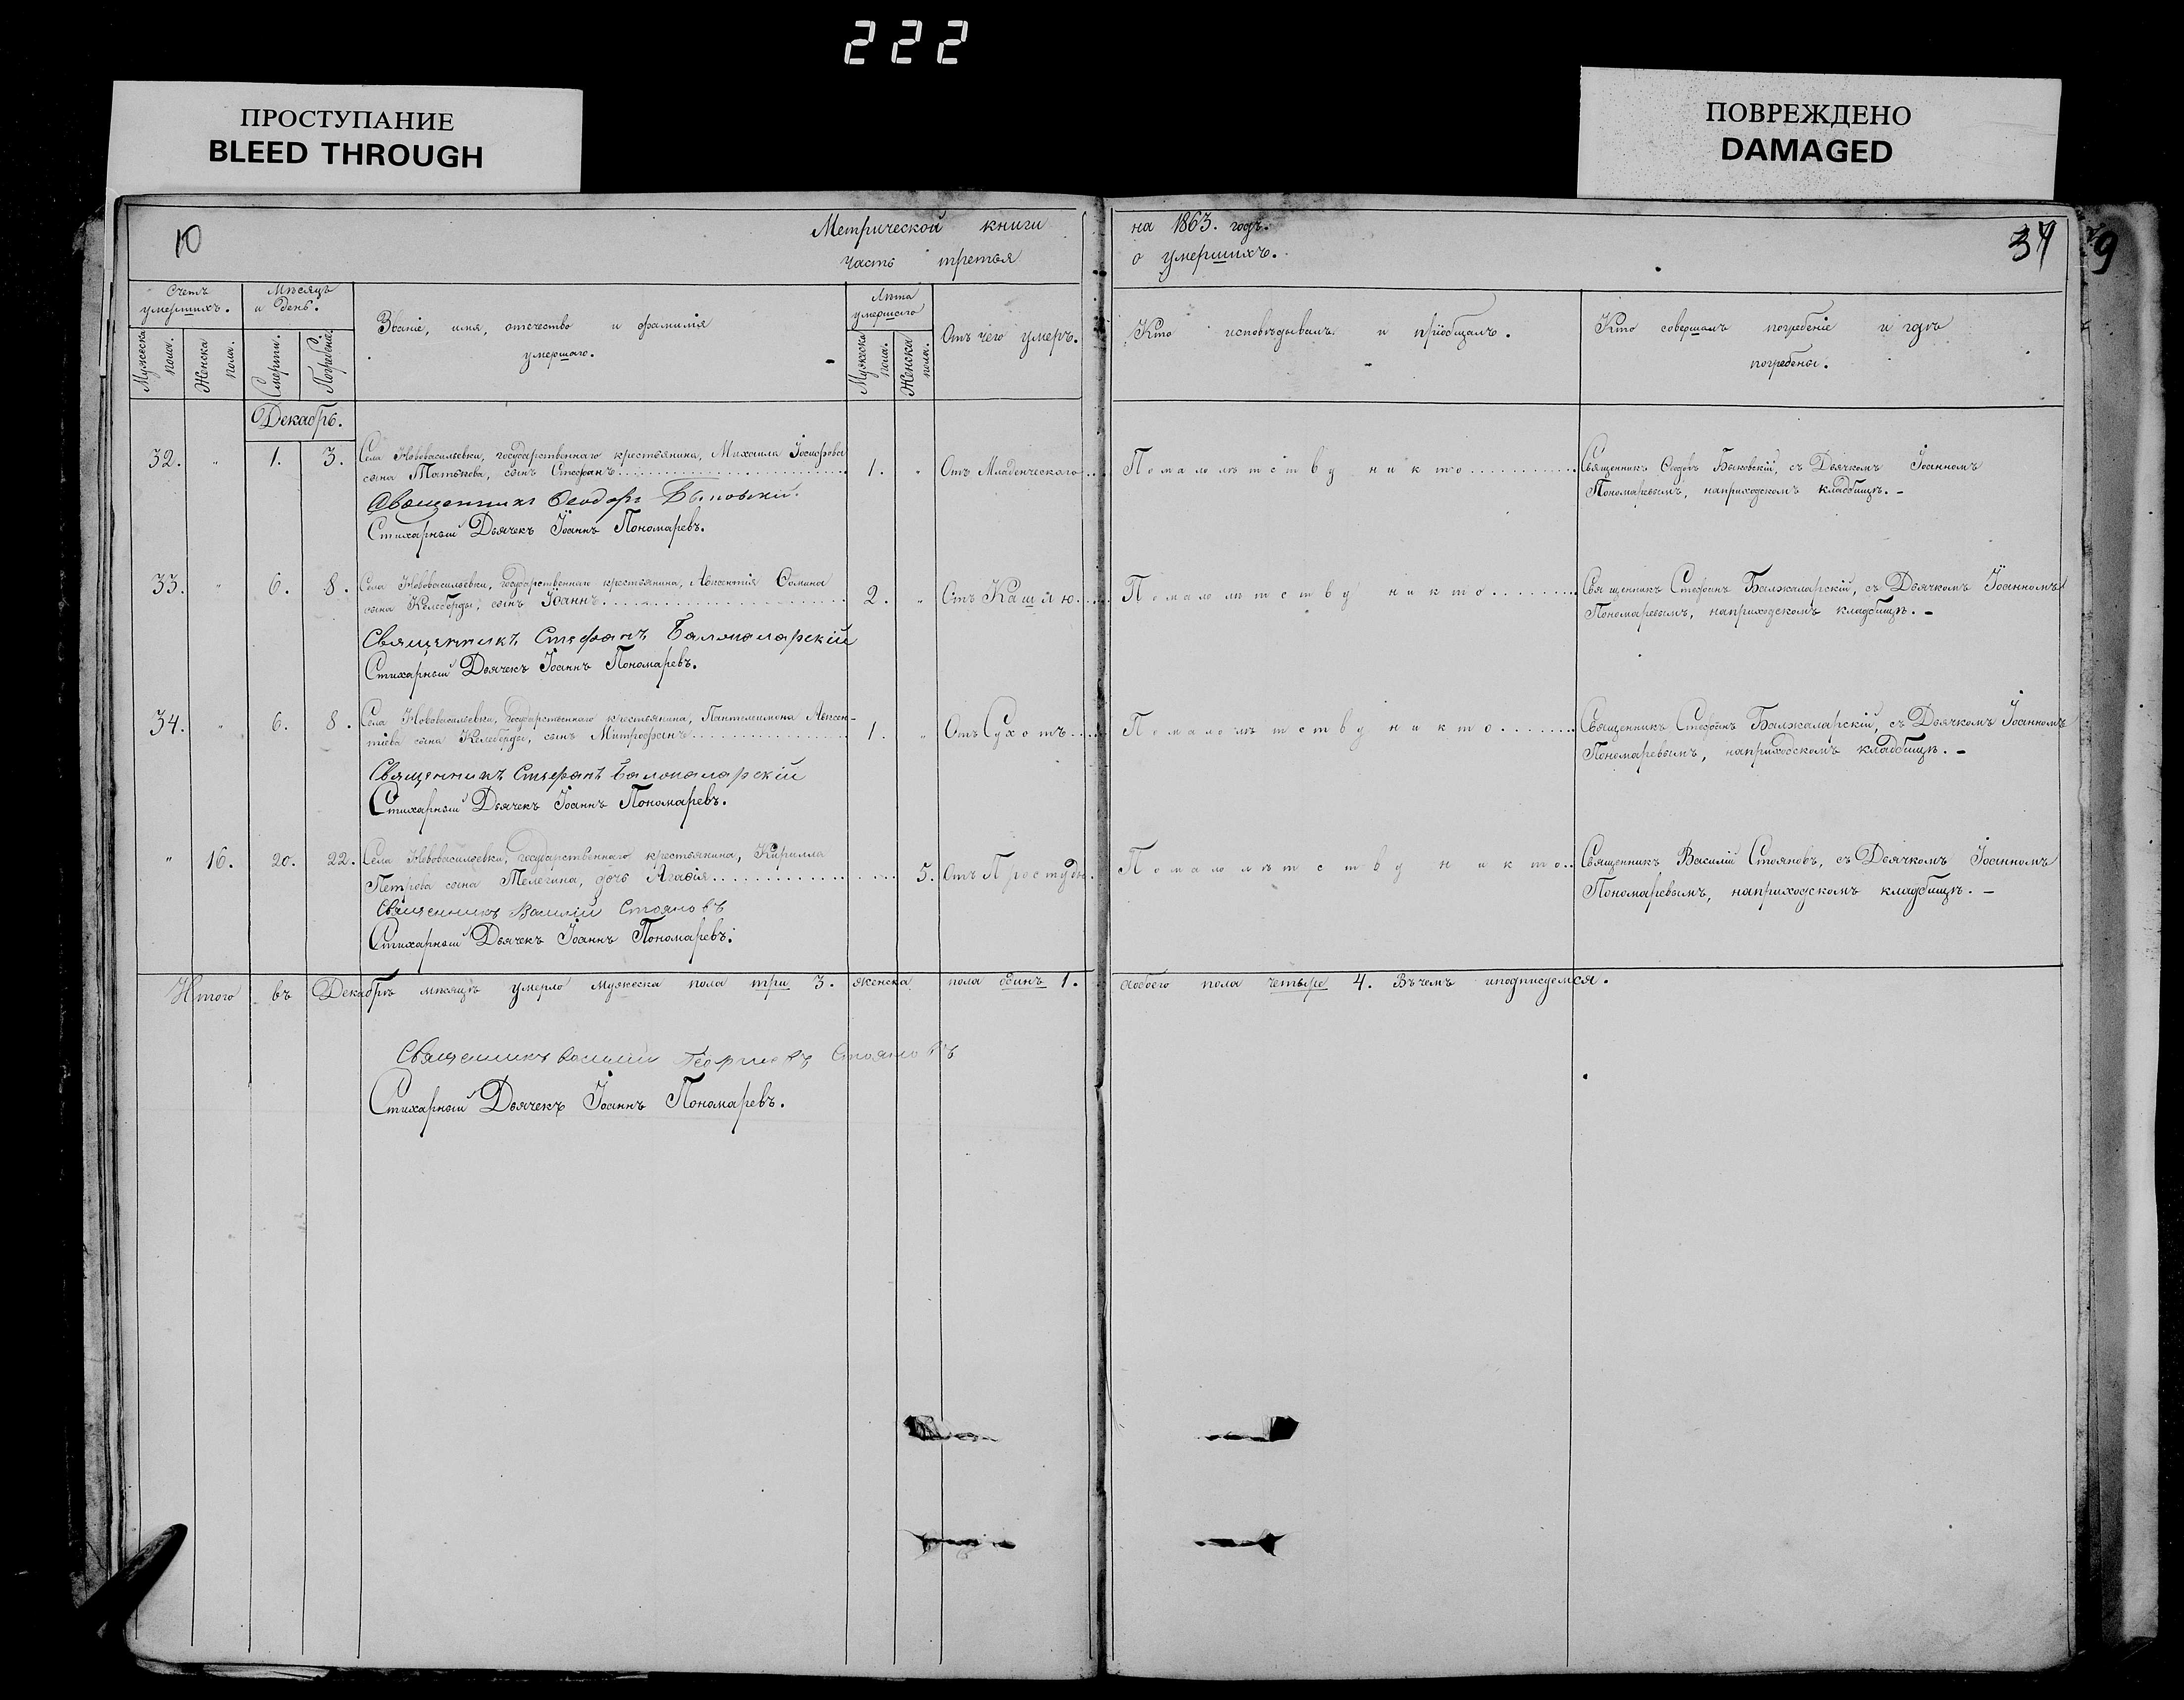 222
ПРОСТУПАНИЕ
BLEED THROUGH
ПОВРЕЖДЕНО
DAMAGED
10
Метрической книги
часть третья
на 1863. годъ.
о умершихъ.
39
Счетъ умершихъ.
Мужеска пола.
Женска пола.
Мѣсяцъ и день.
Смерти.
Погребенія.
Званіе, имя, отечество и фамилія
умершаго.
Лѣта умершего
Мужеска пола.
Женска пола.
Отъ чего умеръ.
Кто исповѣдывалъ и пріобщалъ.
Кто совершалъ погребеніе и гдѣ
погребены.
Декабрь.
32. " 1. 3. Села Нововасильевки, государственнаго крестьянина, Михаила Іосифова
сына Татькова, сынъ Стефанъ 1. " Отъ Младенческаго Помалолѣтству никто
Священникъ Ѳеодоръ Быковскій, съ Дьячкомъ Іоанномъ
Пономаревымъ, наприходскомъ кладбищѣ. –
Священникъ Ѳеодоръ Быковскій.
Стихарный Дьячекъ Іоаннъ Пономаревъ.
33. " 6. 8. Села Нововасильевки, государственнаго крестьянина, Авксентія
сына Келеберды, сынъ Іоаннъ 2. " Отъ Кашлю Помалолѣтству никто
Священникъ Стефанъ Балжаларскій, съ Дьячкомъ Іоанномъ
Пономаревымъ, наприходскомъ кладбищѣ. –
Священникъ Стефанъ Балжаларскій
Стихарный Дьячекъ Іоаннъ Пономаревъ.
34. " 6. 8. Села Нововасильевки, государственнаго крестьянина, Пантелеимона Авксен-
тіева сына Келеберды, сынъ Митрофанъ 1. " Отъ Сухотъ Помалолѣтству никто
Священникъ Стефанъ Балжаларскій, съ Дьячкомъ Іоанномъ
Пономаревымъ, наприходскомъ кладбищѣ. –
Священникъ Стефанъ Балжаларскій
Стихарный Дьячекъ Іоаннъ Пономаревъ.
" 16. 20. 22. Села Нововасильевки, государственнаго крестьянина, Кирилла
Петрова сына Телегина, дочь Агафія 5. Отъ Простуды Помалолѣтству никто
Священникъ Василій Стояновъ, съ Дьячкомъ Іоанномъ
Пономаревымъ, наприходскомъ кладбищѣ. –
Священникъ Василій Стояновъ
Стихарный Дьячекъ Іоаннъ Пономаревъ.
Итого въ Декабрѣ мѣсяцѣ умерло мужеска пола три 3. женска пола одинъ 1. аобоего пола четыре 4. Въчемъ иподписуемся.
Священникъ Василий Георгиевъ Стояновъ
Стихарный Дьячекъ Іоаннъ Пономаревъ.